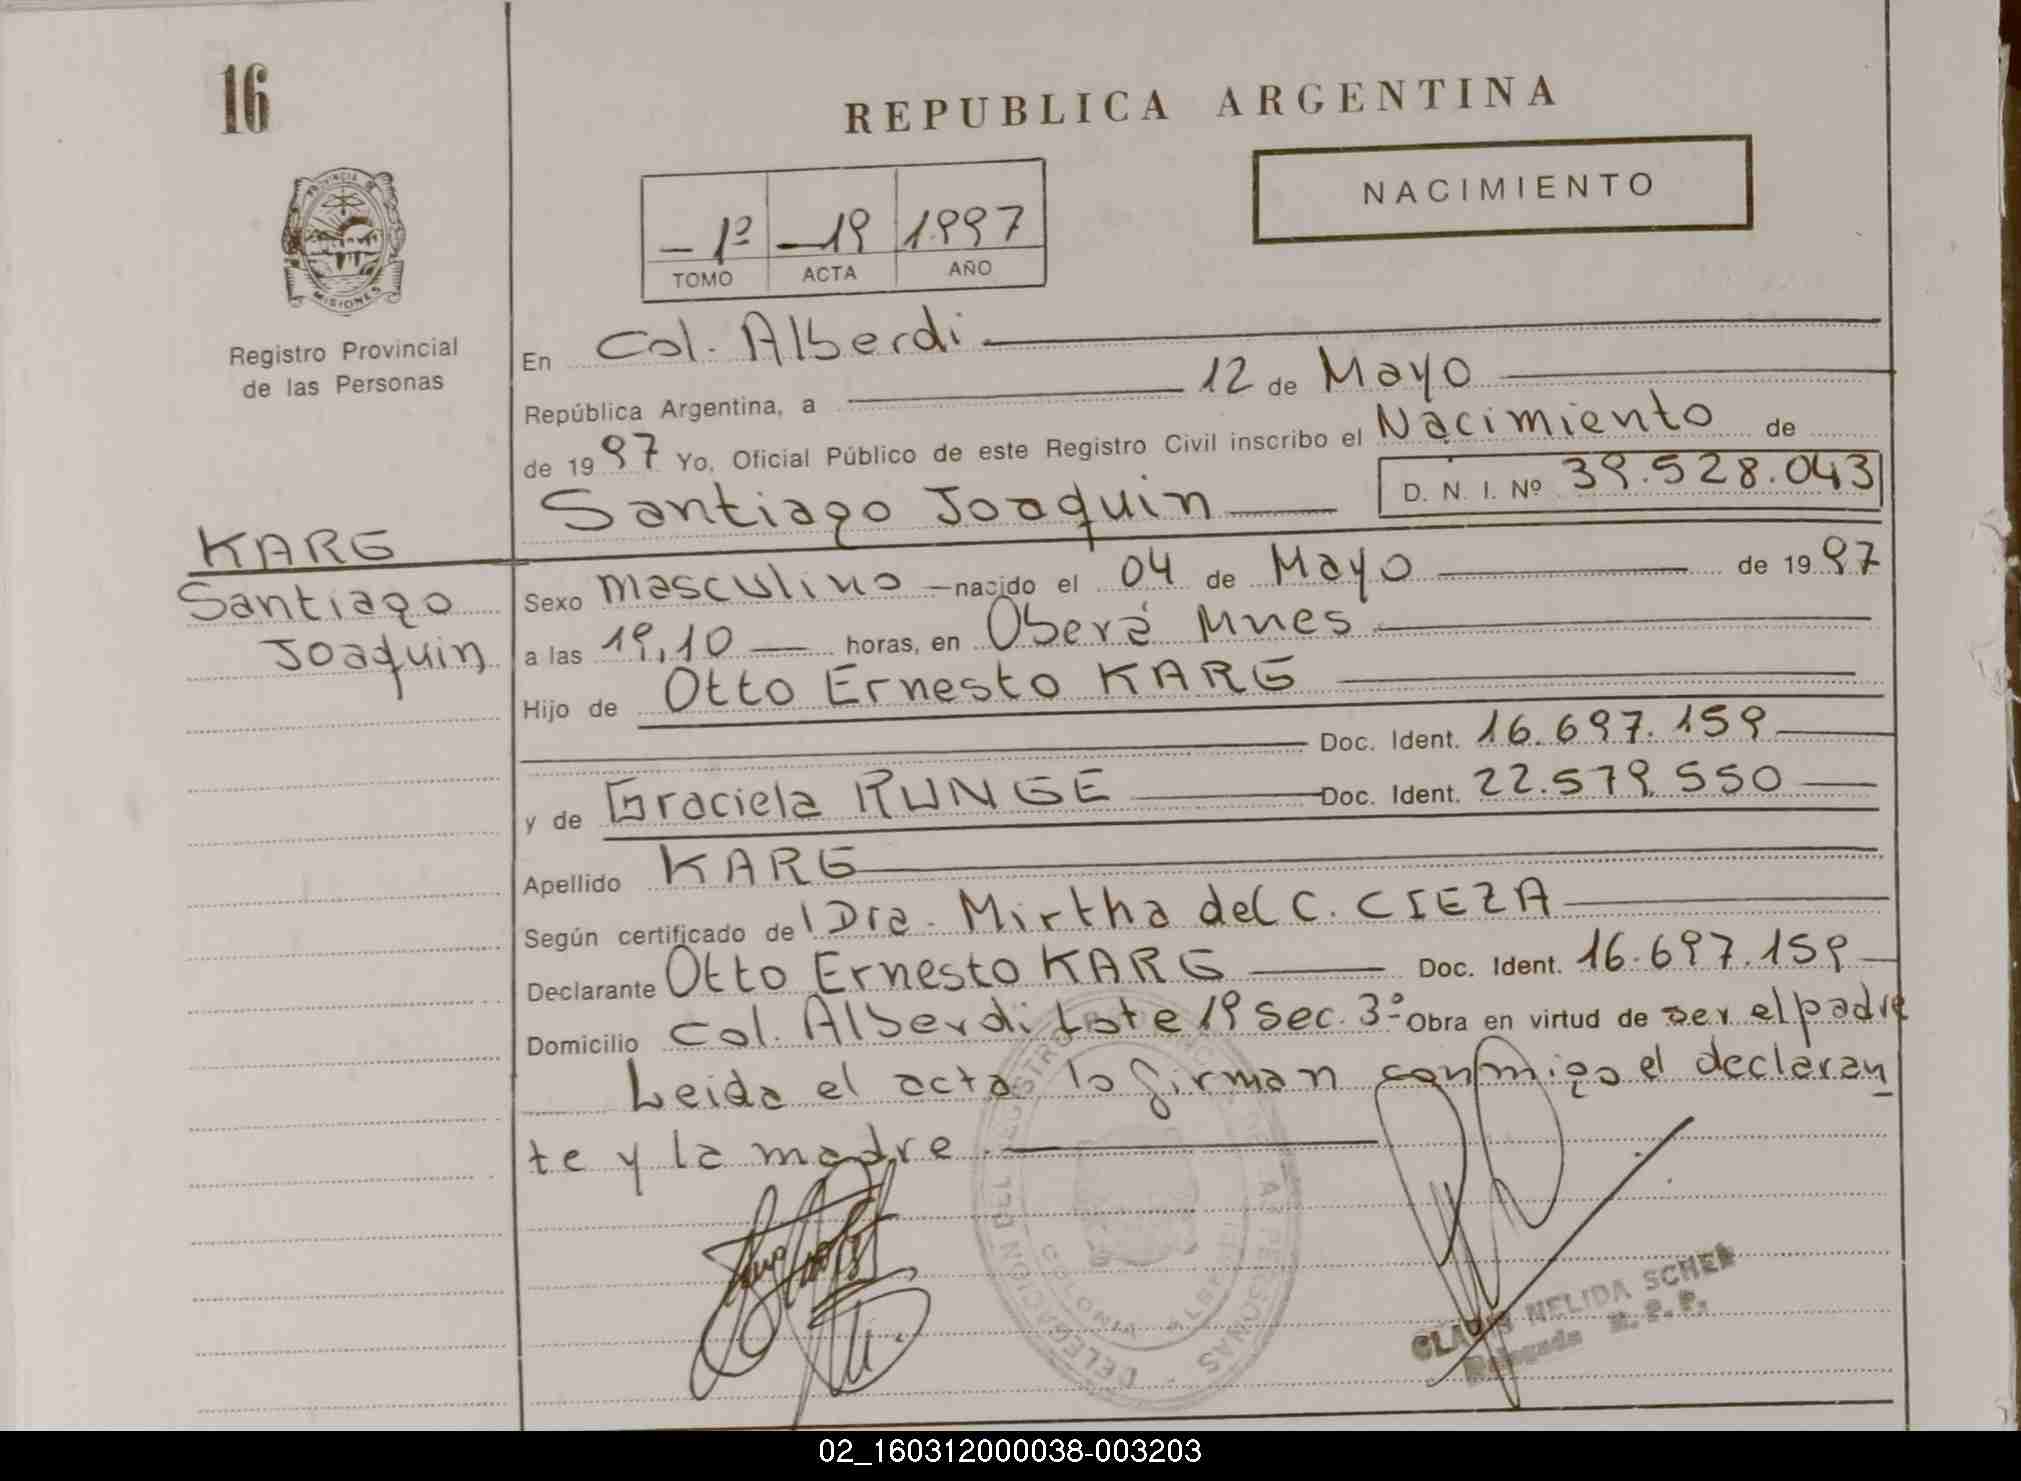 16
REPUBLICA ARGENTINA
NACIMIENTO
PROVINCIA DE
MISIONES
Registro Provincial
de las Personas
1º 19 1997
TOMO ACTA AÑO
En Col. Alberdi
República Argentina, a 12 de Mayo
de 1997 Yo, Oficial Público de este Registro Civil inscribo el Nacimiento de
Santiago Joaquin D. N. I. Nº 39.528.043
KARG
Santiago
Joaquin
Sexo masculino nacido el 04 de Mayo de 1997
a las 19,10 horas, en Oberá Mnes
Hijo de Otto Ernesto KARG
Doc. Ident. 16.697.159
y de Graciela RUNGE Doc. Ident. 22.579.550
Apellido KARG
Según certificado de Dra. Mirtha del C. CIEZA
Declarante Otto Ernesto KARG Doc. Ident. 16.697.159
Domicilio Col. Alberdi Lote 19 Sec. 3º Obra en virtud de ser el padre
Leida el acta la firman conmigo el declaran
te y la madre.
DELEGACION DEL REGISTRO DE LAS PERSONAS
COLONIA ALBERDI
GLADIS NELIDA SCHER
Delegada R.P.P.
02_160312000038-003203